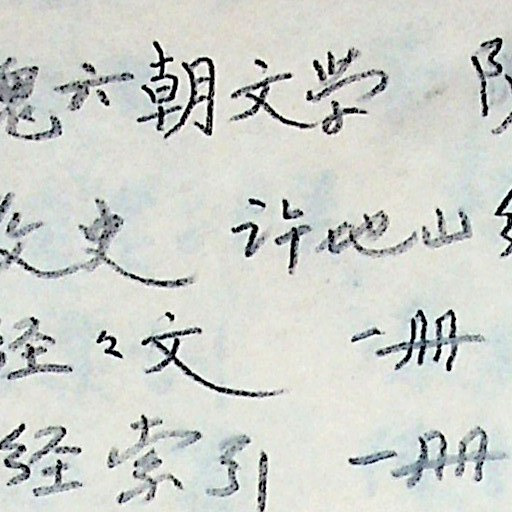 魏六朝文学
教史 许地山
经々文 一册
经索引 一册